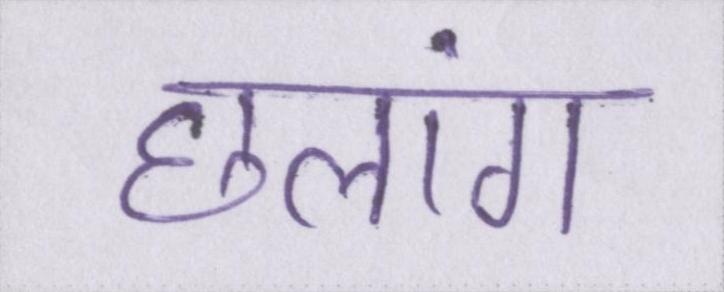 छलांग